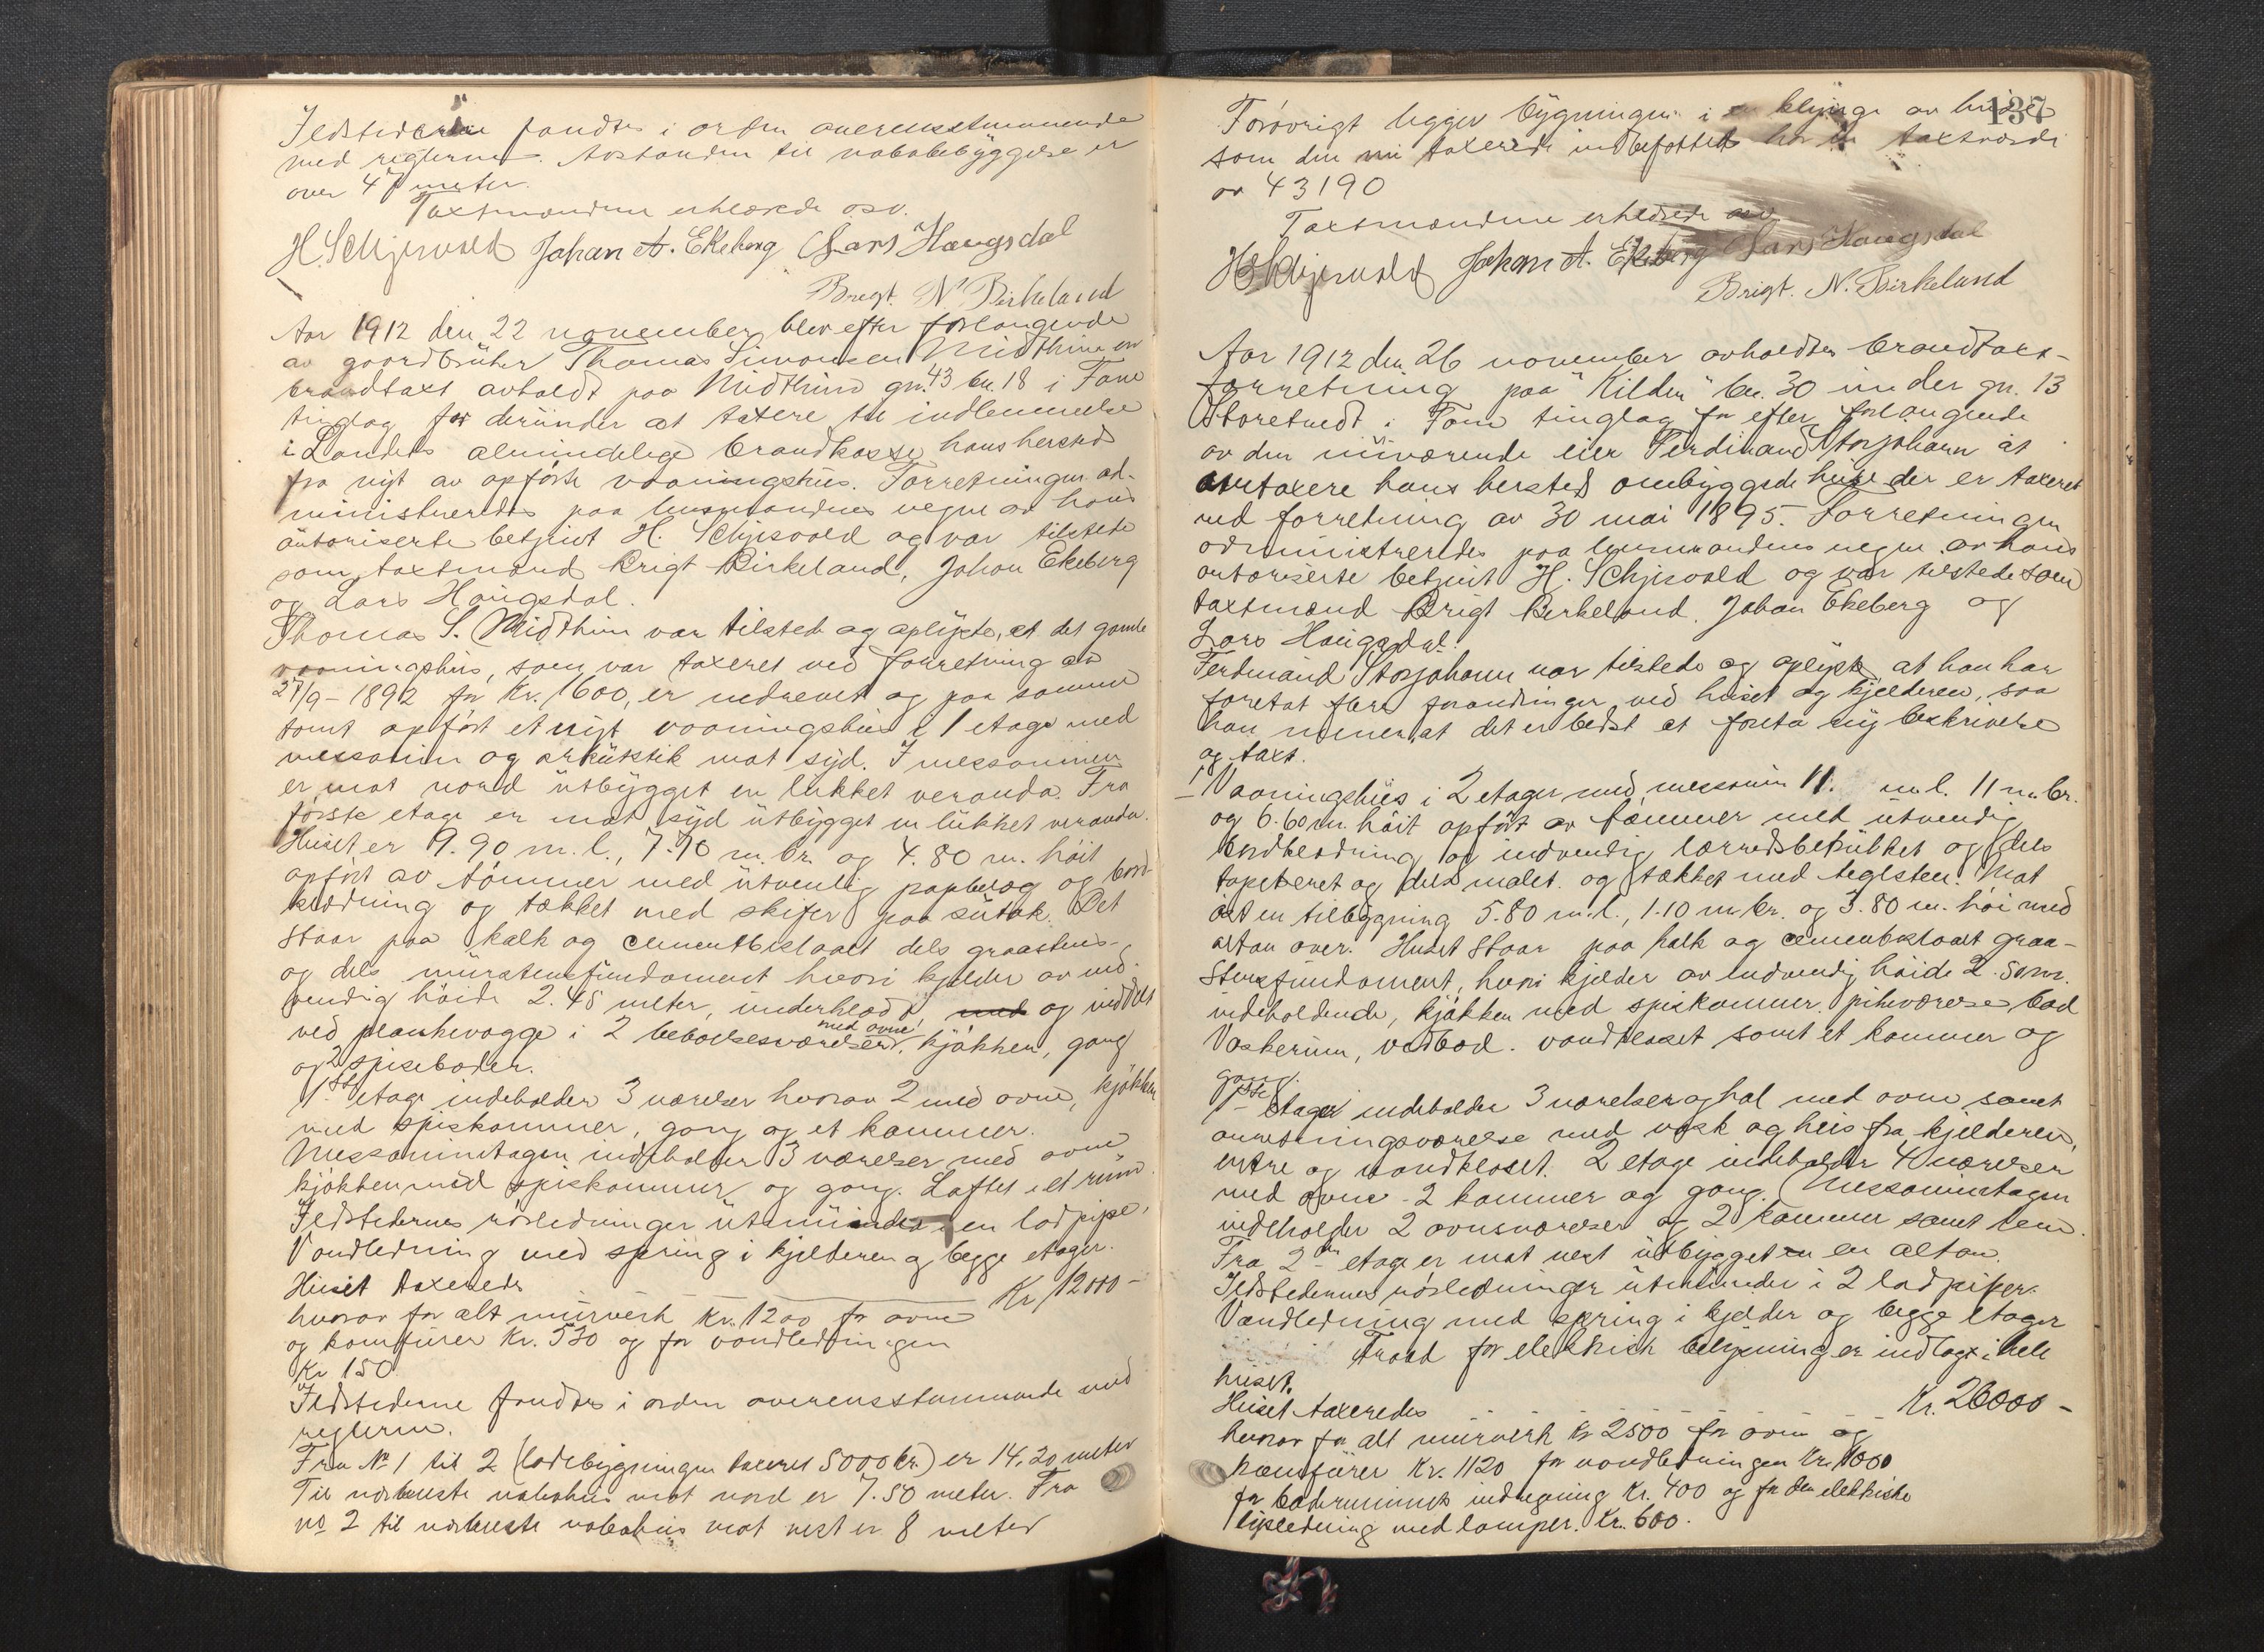 Ildstederne fandtes i orden overensstemmende
med reglerne. Avstanden til nabobebyggelse er
over 47 meter.
Taxtmændene erklærede osv.
H. Schjervold Johan A. Ekeberg Lars Haugsdal
Brigt. N. Birkeland
Aar 1912 den 22 november blev efter forlangende
av gaardbruker Thomas Simonsen Midthun en
brandtaxt avholdt paa Midthun gn. 43 bn. 18 i Fane
tinglag for derunder at taxere til indlemmelse
i Landets almindelige brandkasse hans hersteds
fra nyt av opførte vaaningshus. Forretningen ad-
ministreredes paa lensmandens vegne av hans
autoriserte betjent H. Schjervold og var tilstede
som taxtmænd Brigt Birkeland, Johan Ekeberg
og Lars Haugsdal.
Thomas S. Midthun var tilstede og oplyste, at det gamle
vaaningshus, som var taxeret ved forretning av
27/9-1892 for Kr. 1600, er nedrevet og paa samme
tomt opført et nyt vaaningshus i 1 etage med
messanin og arkutstik mot syd. I messaninen
er mot nord utbygget en lukket veranda. Fra
første etage er mot syd utbygget en lukket veranda.
Huset er 9.90 m. l., 7.70 m. br. og 4.80 m. høit
opført av tømmer med utvendig papbelæg og bord-
klædning og tækket med skifer paa sutak. Det
staar paa kalk og cementbeslaaet dels graastens-
og dels murstensfundament hvori kjelder av ind-
vendig høide 2.45 meter, underklædd, med og inddelt
ved plankevægge i 2 beboelsesværelser med ovne, kjøkken, gang
og 2 spiseboder.
1ste etage indeholder 3 værelser hvorav 2 med ovne, kjøkken
med spiskammer, gang og et kammer.
Messaninetagen indeholder 3 værelser med ovne
kjøkken med spiskammer og gang. Loftet i et rum.
Ildstedernes rørledninger utmunder i en lodpipe,
Vandledning med spring i kjelderen og begge etager.
Huset taxeredes Kr. 12000-
hvorav for alt murverk Kr. 1200 for ovne
og komfurer Kr. 530 og for vandledningen
Kr 150.
Ildstederne fandtes i orden overensstemmende med
reglerne.
Fra No 1 til 2 (ladebygningen taxeret 5000 kr.) er 14.20 meter
Til nærmeste nabohus mot nord er 7.50 meter. Fra
no 2 til nærmeste nabohus mot vest er 8 meter
137
Forøvrigt ligger bygningen i klynge av huse
som den nu taxerede indbefattet har en taxtværdi
av 43190
Taxtmændene erklærede osv.
H Schjervold Johan A. Ekeberg Lars Haugsdal
Brigt. N. Birkeland
Aar 1912 den 26 november avholdtes brandtaxt-
forretning paa "Kilden" bn. 30 under gn. 13
Storetvedt i Fane tinglag for efter forlangende
av den nuværende eier Ferdinand Storjohann at
omtaxere hans hersteds ombyggede huse der er taxeret
ved forretning av 30 mai 1895. Forretningen
administreredes paa lensmandens vegne av hans
autoriserte betjent H. Schjervold og var tilstede som
taxtmænd Brigt Birkeland, Johan Ekeberg og
Lars Haugsdal.
Ferdinand Storjohann var tilstede og oplyste at han har
foretat flere forandringer ved huset og kjelderen, saa
han mener, at det er bedst at foreta ny beskrivelse
og taxt.
1 Vaaningshus i 2 etager med messanin 11. m. l. 11 m. br.
og 6.60 m. høit opført av tømmer med utvendig
bordklædning og indvendig lærredsbetrukket og dels
tapetseret og dels malet. og tækket med teglsten. Mot
øst en tilbygning 5.80 m. l., 1.10 m br. og 3.80 m. høi med
altan over. Huset staar paa kalk og cementbeslaaet graa-
stensfundament, hvori kjelder av indvendig høide 2.50 m.
indeholdende, kjøkken med spiskammer, pikeværelse, bad
Vaskerum, vedbod. vandkloset samt et kammer og
gang.
1ste etage indeholder 3 værelser og hal med ovne samt
anretningsværelse med vask og heis fra kjelderen,
entre og vandkloset. 2 etage indeholder 4 værelser
med ovne - 2 kammer og gang. Messaninetagen
indeholder 2 ovnsværelser og 2 kammer samt lem.
Fra 2den etage er mot vest utbygget en altan.
Ildstedernes rørledninger utmunder i 2 lodpiper.
Vandledning med spring i kjelder og begge etager
Traad for elektrisk belysning er indlagt i hele
huset.
Huset taxeredes Kr. 26000-
hvorav for alt murverk kr 2500 for ovne og
komfurer Kr. 1120 for vandledningen Kr. 1000
for baderummets indregning Kr. 400 og for den elektriske
lysledning med lamper. Kr. 600.